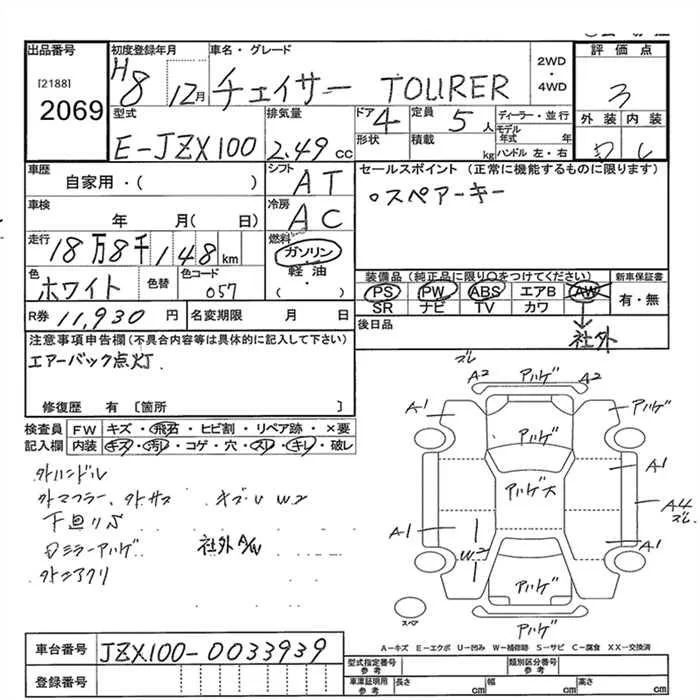 出品番号
[2188]
2069
初度登録年月
H8 12月
車名・グレード
チェイサー TOURER
2WD
・
4WD
評価点
3
外装 内装
D
型式
E-JZX100
排気量
2.49cc
ドア
4
形状
定員
5人
積載
kg
ディーラー・並行
モデル年式 年
ハンドル 左・右
車歴
自家用・( )
シフト
AT
セールスポイント (正常に機能するものに限ります)
○スペアーキー
車検
年 月( 日)
冷房
AC
走行
18万8千148km
燃料
ガソリン・
軽油・
( )
色
ホワイト
色替
色コード
057
装備品(純正品に限り○をつけてください)
PS PW ABS エアB AW
SR ナビ TV カワ
新車保証書
有・無
R券 11,930円
名変期限 月 日
後日品
社外
注意事項申告欄(不具合内容等は具体的に記入して下さい)
エアーバック点灯.
修復歴 有 [箇所 ]
検査員記入欄
FW キズ・飛石・ヒビ割・リペア跡・×要
内装 キズ・汚レ・コゲ・穴・スレ・キレ・破レ
外ハンドル
外マフラー、外サス キズU W2
下回りS
Dミラーアハゲ 社外A/W
外ニアクリ
ズレ
A2 アハゲ A2
A1 アハゲ
アハゲ
A1
アハゲ大
A4
ズレ
A1
W2
A1
アハゲ
スペア
アハゲ
A−キズ E−エクボ U−凹み W−補修跡 S−サビ C−腐食 XX−交換済
車台番号
JZX100-0033939
登録番号
型式指定番号
参考
類別区分番号
参考
車庫証明用
参考
長さ cm 幅 cm 高さ cm